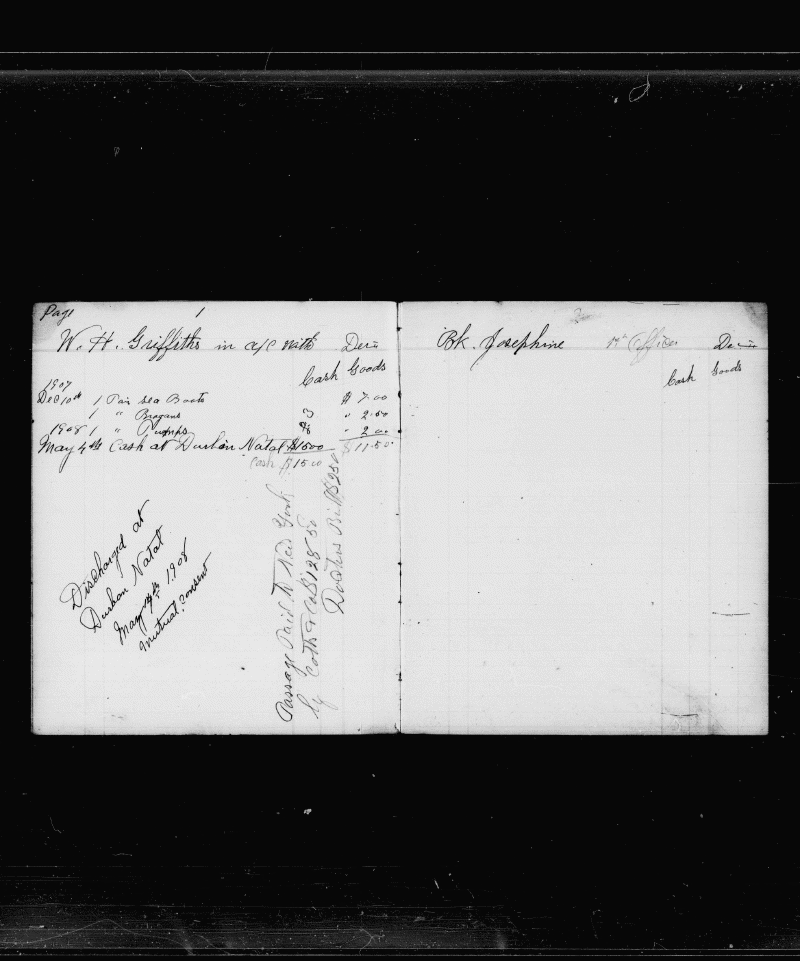 Page 1
W. H. Griffiths in a/c with
Cash Goods
1907
Dec 10th 1 Pair sea Boots $ 7.00
1 " Brogans 3 " 2.50
1908 1 " Pumps " 2.00
May 4th Cash at Durban Natal $1500 $11.50
Cash $1500
Discharged at
Durban Natal
May 4th 1908
mutual consent
Passage Paid to New York
by Coths & Co $128.50
Doctors Bill $250
2
Bk. Josephine Officer
Cash Goods